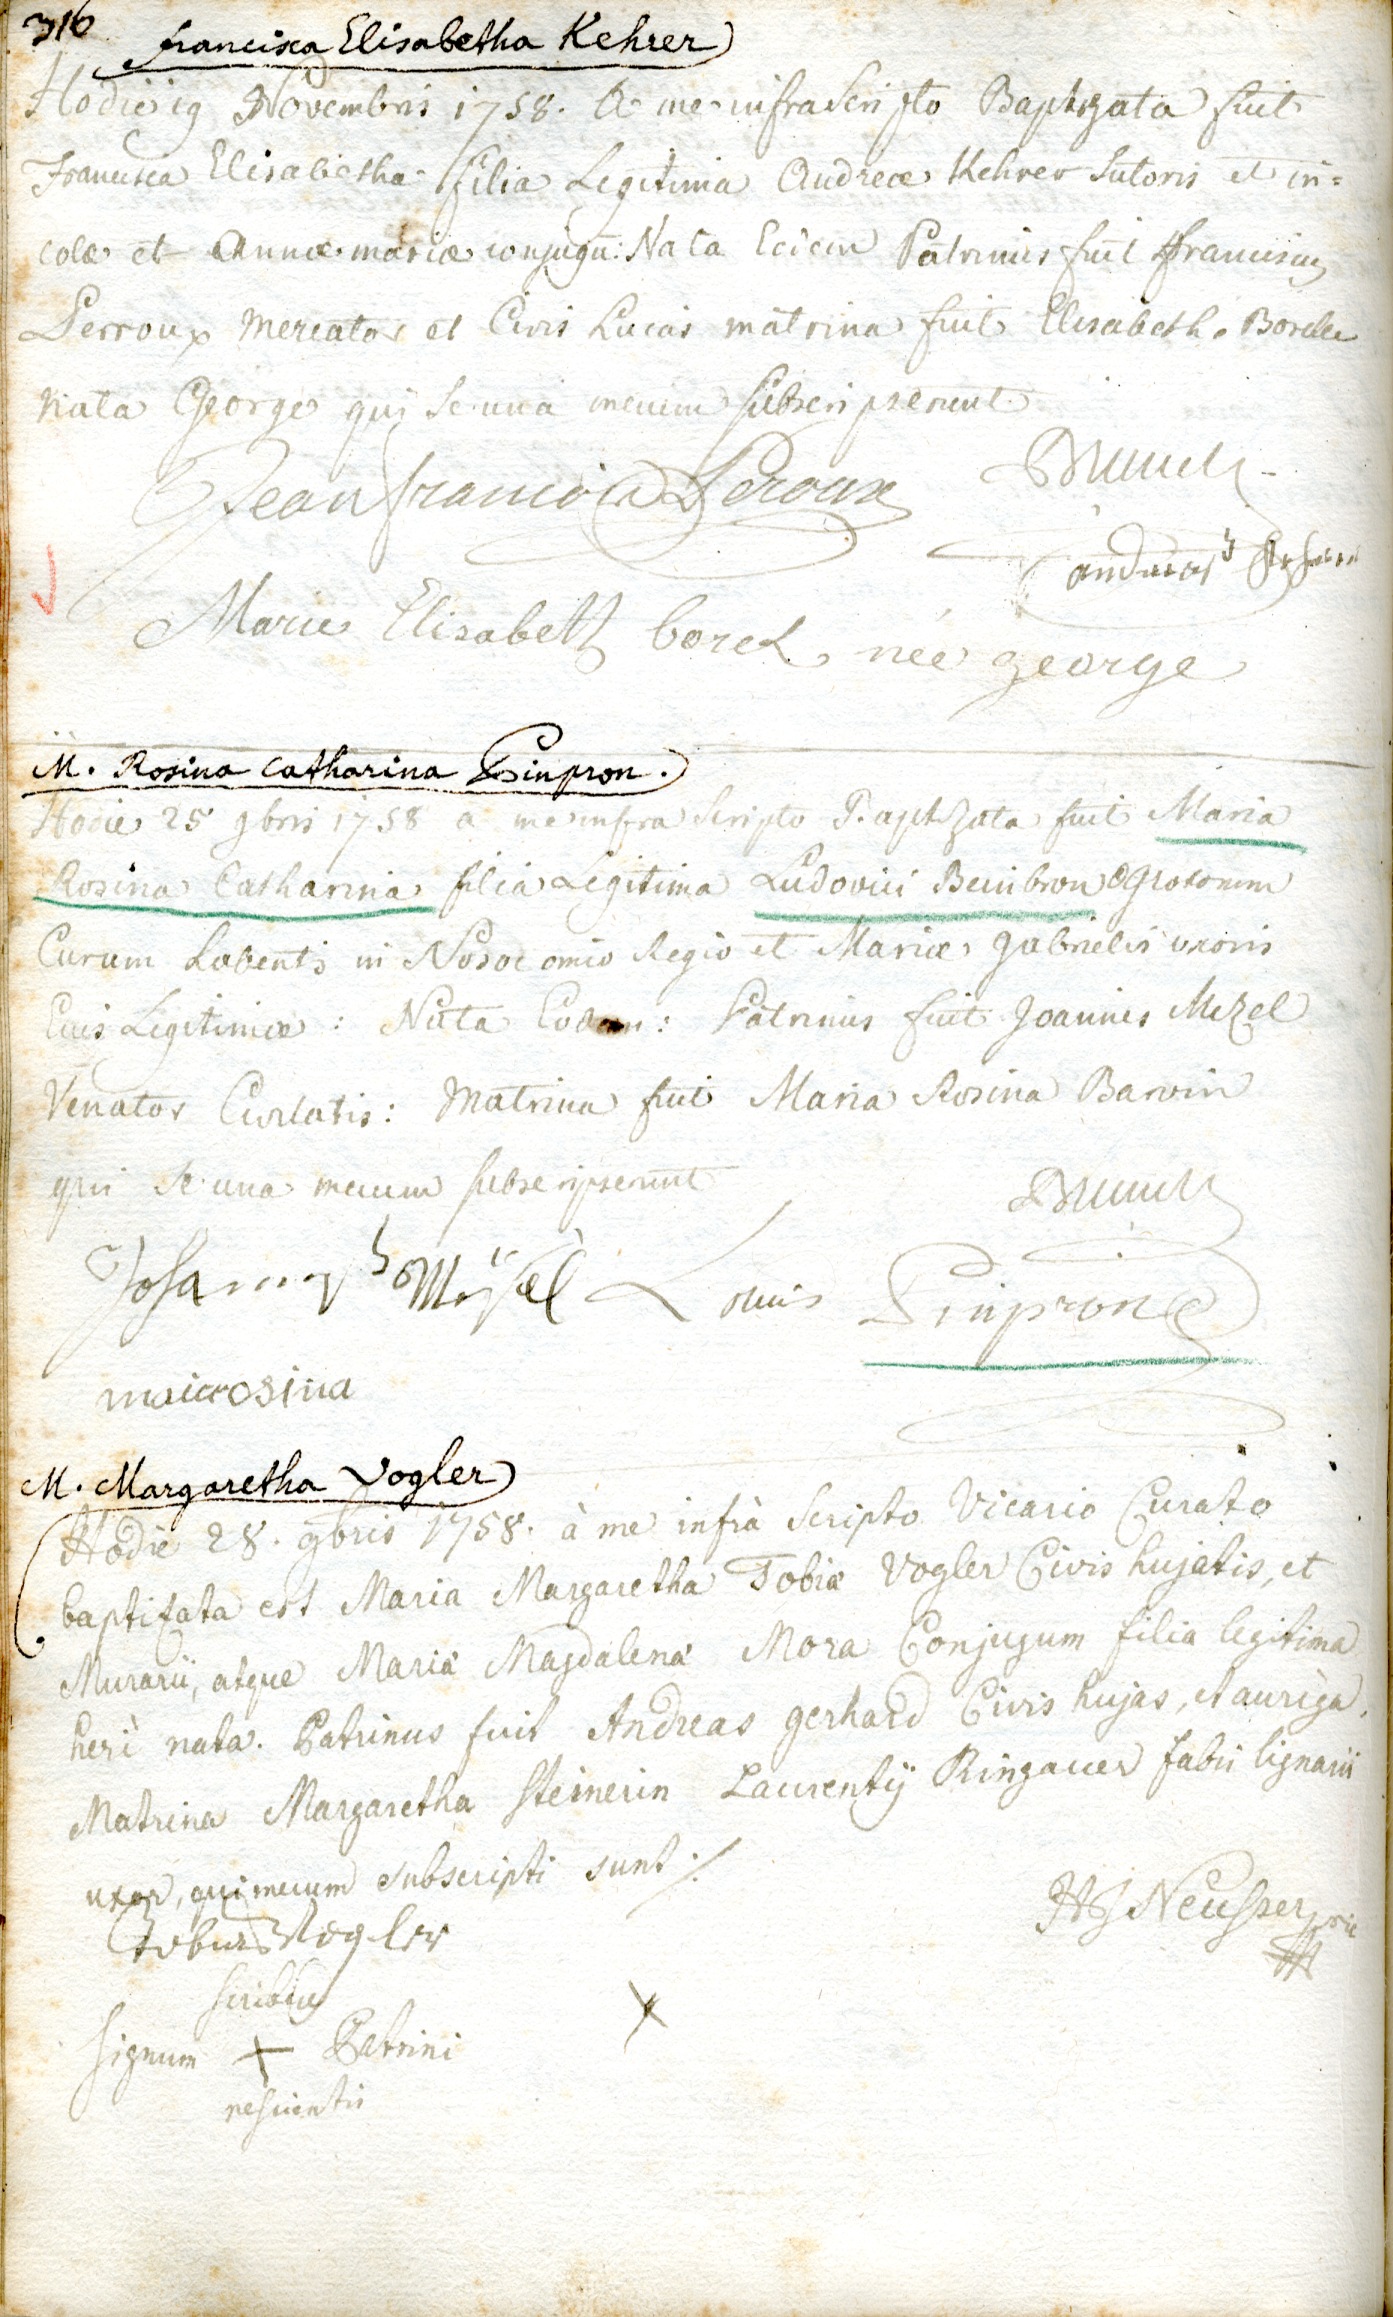 316
Francisca Elisabetha Kehrer
Hodie 19 Novembris 1758. A me infra Scripto Baptizata fuit
Francisca Elisabetha filia Legitima Andreæ Kehrer Sutoris et in=
colæ et Annæ mariæ conjugu: Nata Fuit Franciscus
Perroux Mercator et Civis Lucas matrina fuit Elisabetha Borelle
nata George qui se una mecum subscripserunt
Jean francois Peroux
Andreas
Marie Elisabeth borel née george
M. Rosina Catharina Pinpron.
Hodie 25 9bris 1758 a me infra Scripto Baptizata fuit Maria
Rosina Catharina filia Legitima Ludovici Beinbron Ægrotorum
Curam habentis in Nosocomio Regio et Mariæ Gabrielis uxoris
Ejus Legitimæ: Nata Eodem: Patrinus fuit Joannes Mezel
Venator Civitatis: Matrina fuit Maria Rosina Barvin
qui se una mecum subscripserunt
Louis Pinpron
maiarosina
M. Margaretha Vogler
Hodie 28. 9bris 1758. à me infrà Scripto Vicario Curato
baptizata est Maria Margaretha Tobiæ Vogler Civis hujatis, et
Murarii, atque Mariæ Magdalenæ Mora Conjugum filia legitima
heri nata. Patrinus fuit Andreas gerhard Civis hujas, et auriga,
Matrina Margaretha Steinerin Laurentij Ringauer fabri lignarii
uxor, qui mecum subscripti sunt ./.
Tobias Vogler
scribere
Signum + Patrini
nescientis
x